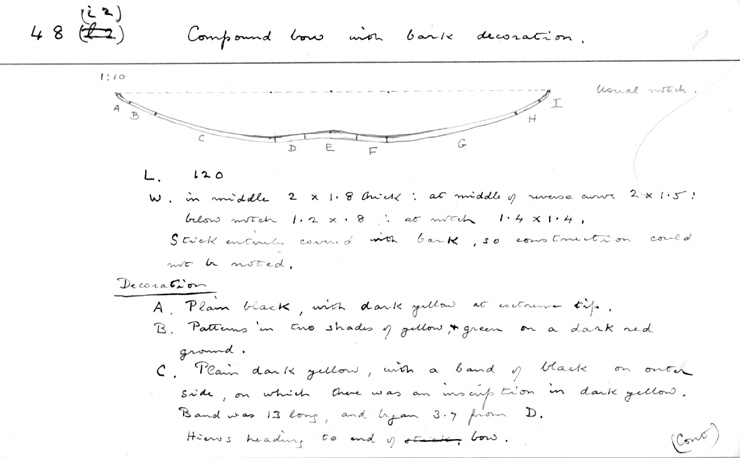 (i 2)
48 (i 2) Compound bow with bark decoration.
1:10
Usual notch.
A B C D E F G H I
L. 120
W. in middle 2 x 1.8 thick : at middle of reverse curve 2 x 1.5 :
below notch 1.2 x .8 : at notch 1.4 x 1.4.
Stick entirely covered with bark, so construction could
not be noted.
Decoration
A. Plain black, with dark yellow at extreme tip.
B. Patterns in two shades of yellow, + green on a dark red
ground.
C. Plain dark yellow, with a band of black on outer
side, on which there was an inscription in dark yellow.
Band was 13 long, and began 3.7 from D.
Hiero's heading to end of stick, bow.
(Cont)